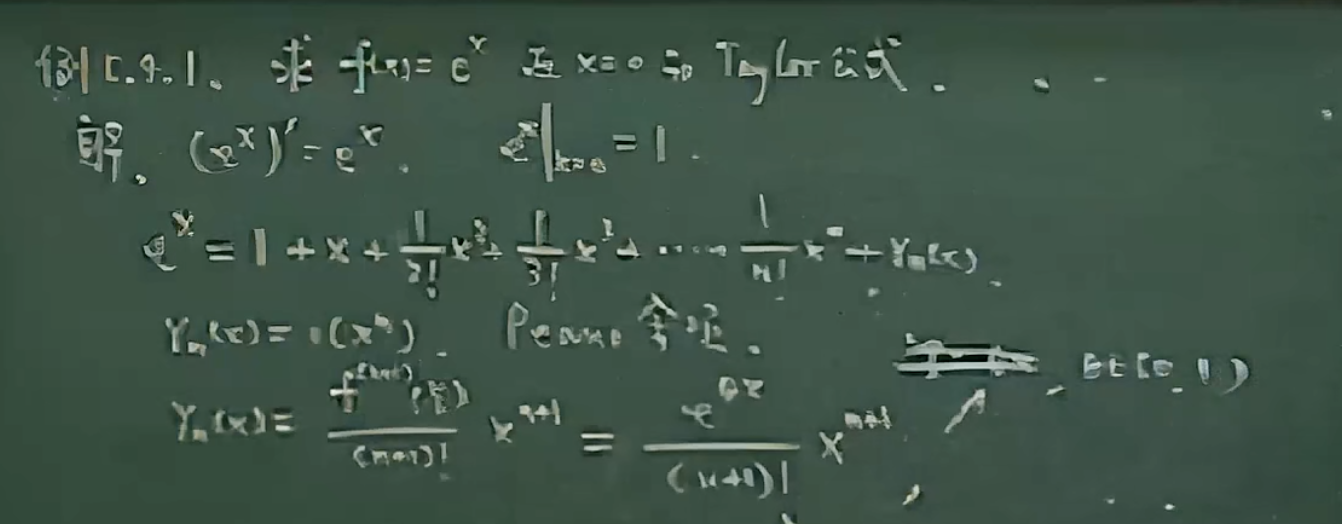 例5.4.1. 求 f(x)=e^x 在 x=0 的 Taylor 公式.
解. (e^x)'=e^x. e^x|_{x=0}=1.
e^x=1+x+\frac{1}{2!}x^2+\frac{1}{3!}x^3+……\frac{1}{n!}x^n+r_n(x).
r_n(x)=o(x^n). Peano 余项.
r_n(x)=\frac{f^{(n+1)}(ξ)}{(n+1)!}x^{n+1}=\frac{e^{θx}}{(n+1)!}x^{n+1} θ∈(0,1)